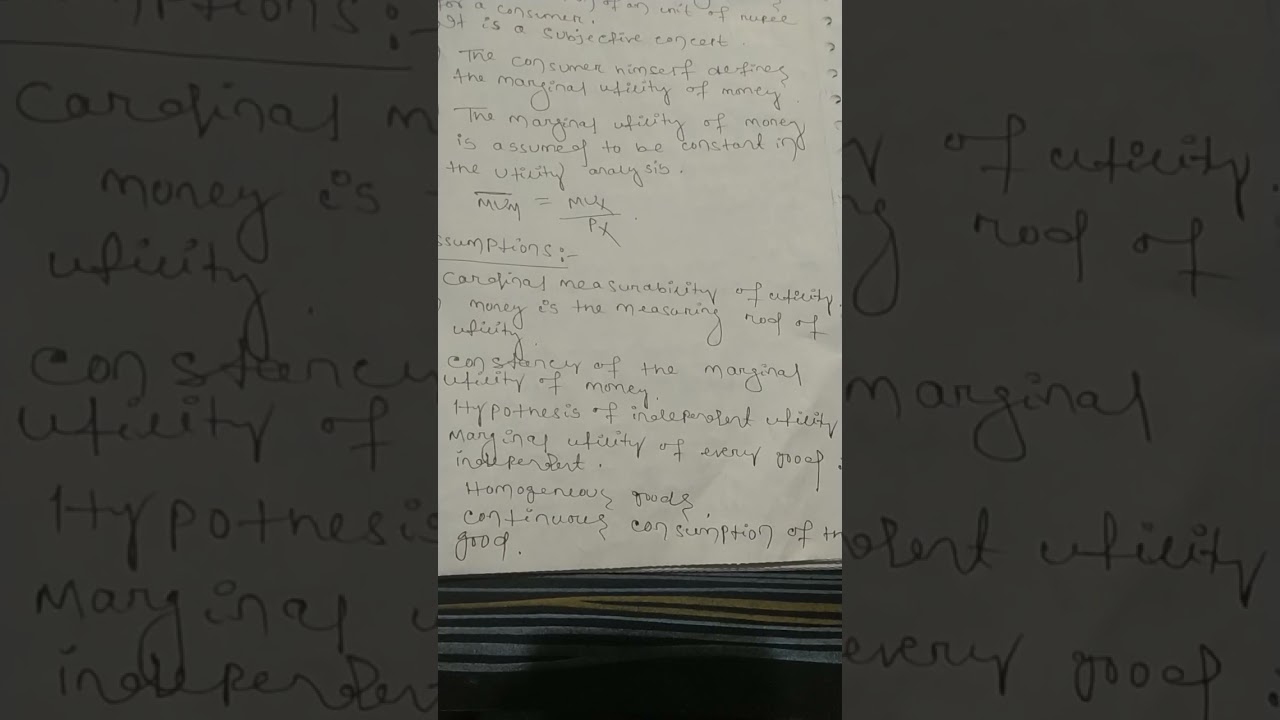 for a consumer. of an unit of rupee
It is a subjective concert.
The consumer himserf defines
the marginal uticity of money.
The marginal uticity of money
is assumed to be constant in
the uticity analysis.
MUM = MUX / PX.
ssumptions:-
cardinal measurability of uticity.
money is the measuring rod of
uticity.
constancy of the marginal
uticity of money.
Hypothesis of independent uticity
Marginal uticity of every good
independent.
Homogeneous goods,
continuous consumption of th
good.